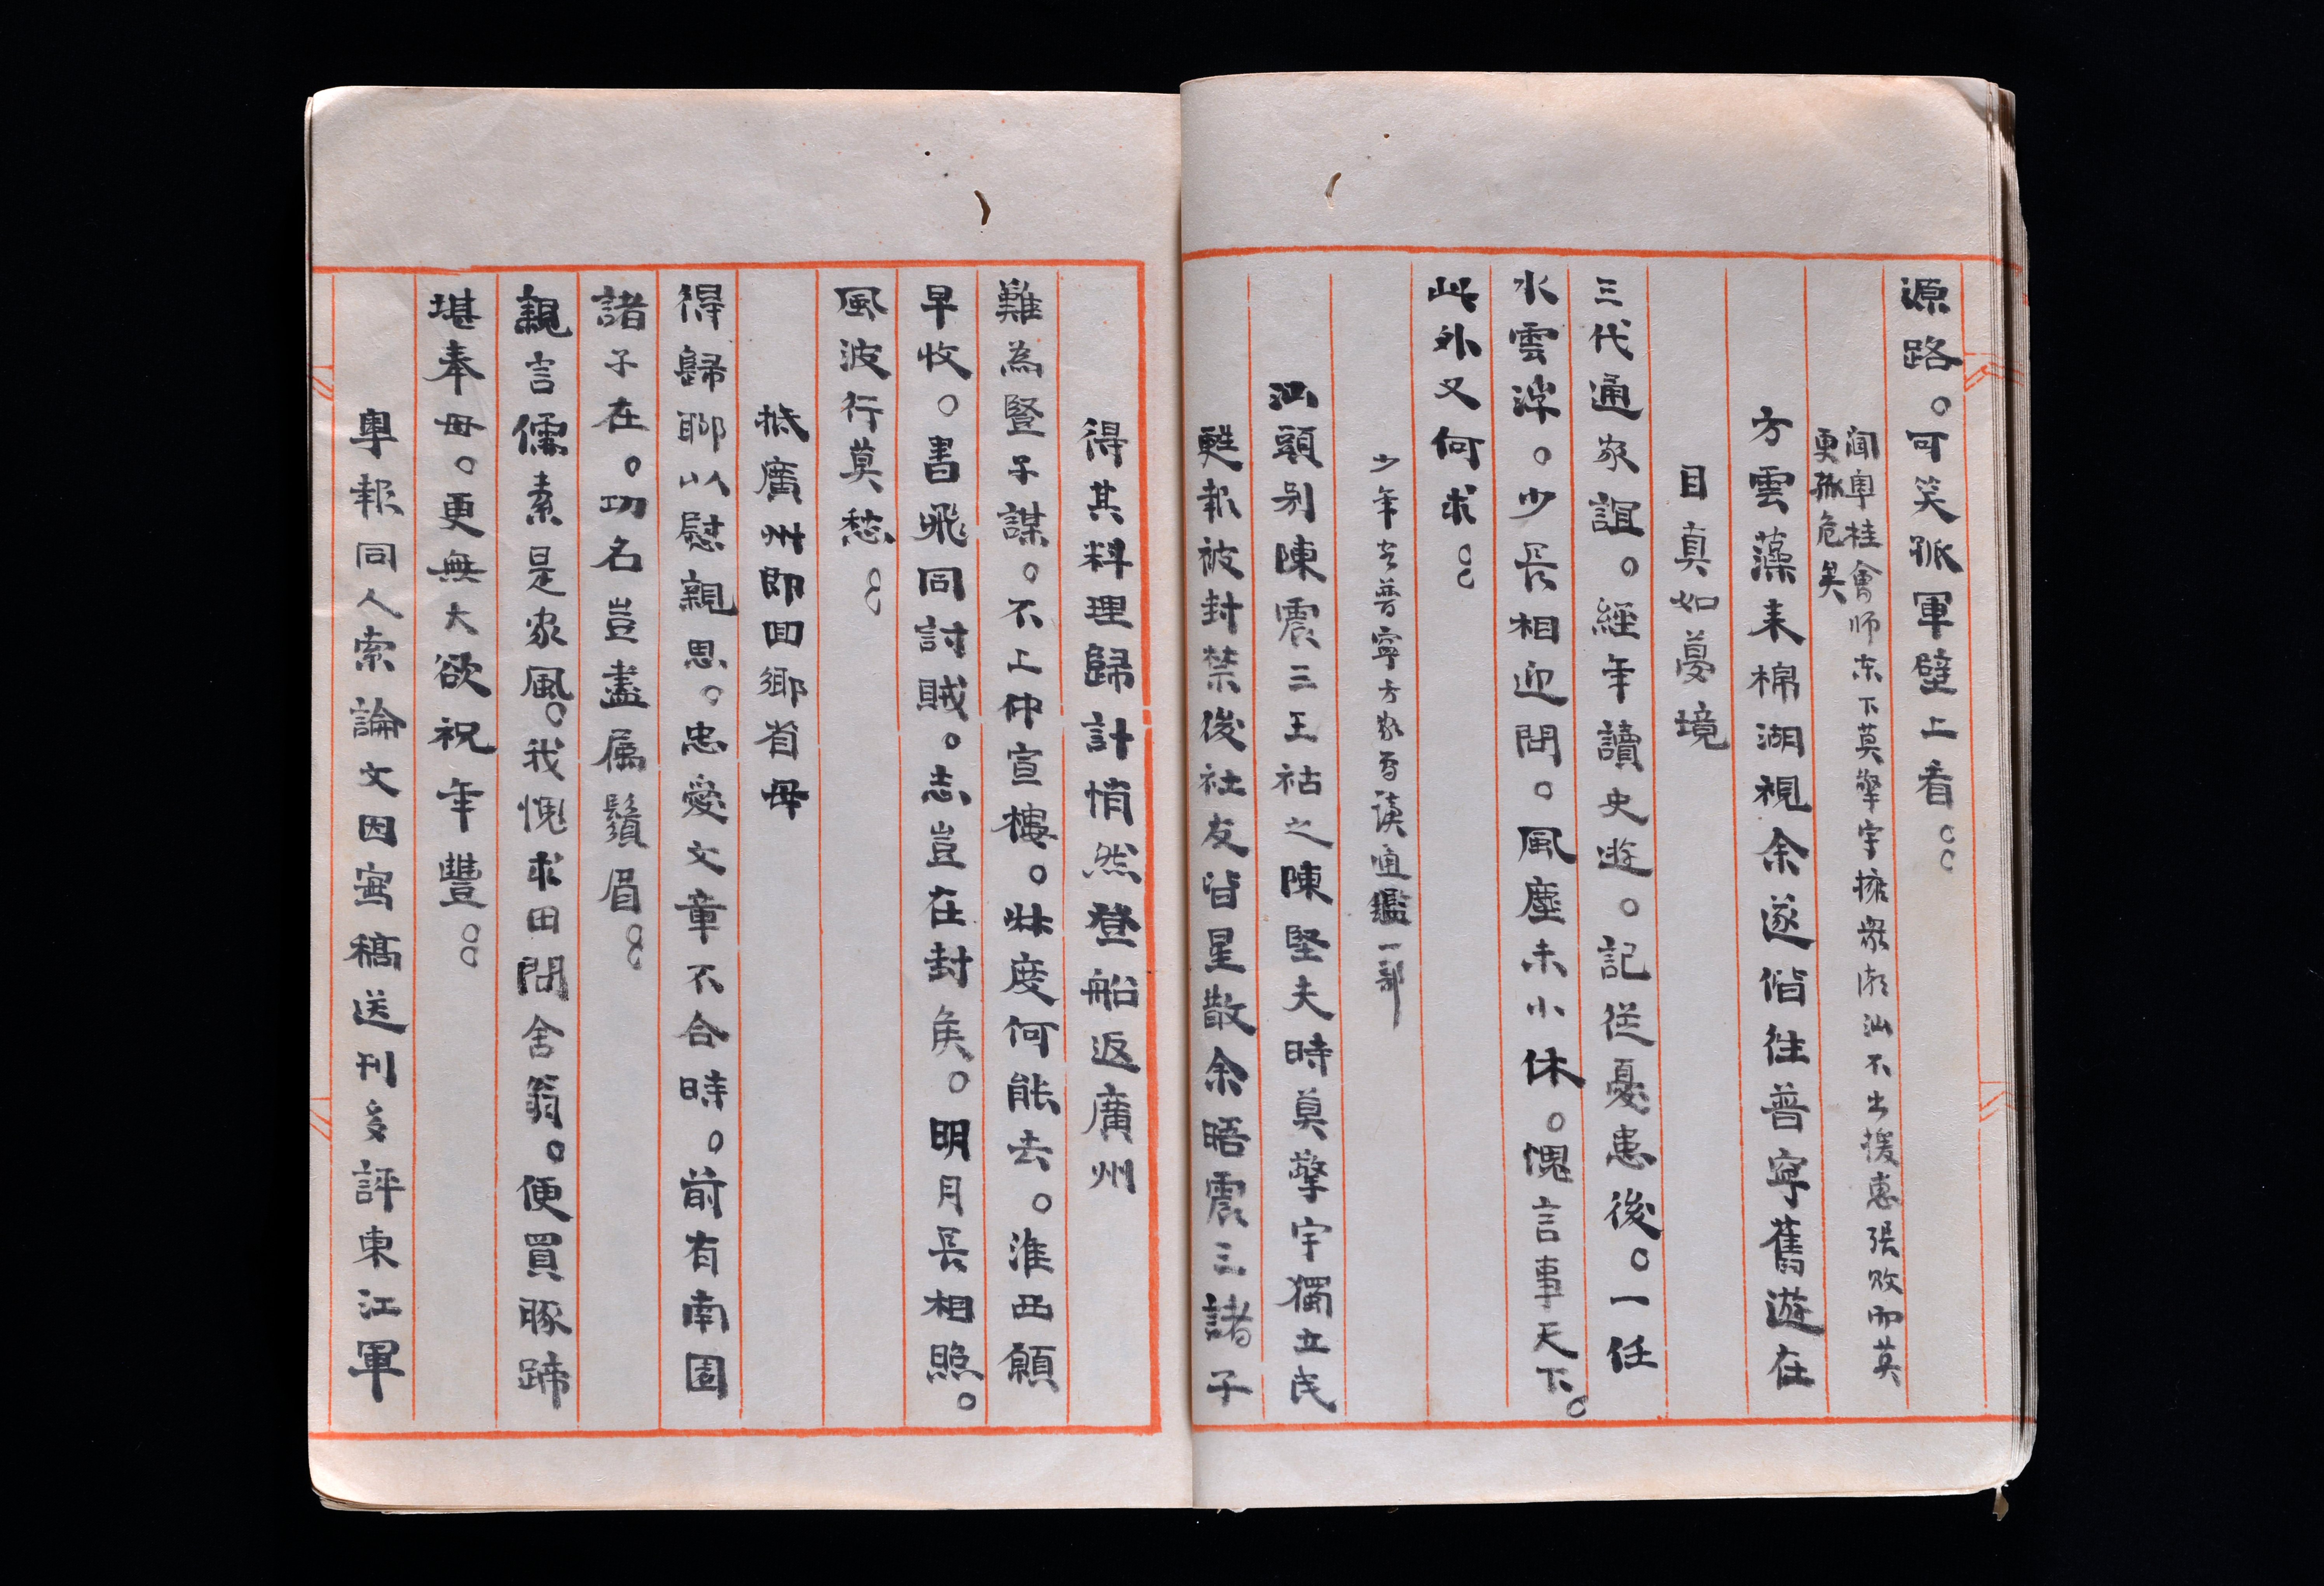 源路。可笑孤軍壁上看。。
闻粤桂會师东下莫擎宇擁衆潮汕不出援惠張敗而莫
更孤危矣
方雲藻来棉湖視余遂偕往普寧舊遊在
目真如夢境
三代通家誼。經年讀史遊。記從憂患後。一任
水雲浮。少長相迎問。風塵未小休。愧言事天下。
此外又何求。。
少年客普寧方家曾读通鑑一部
汕頭别陳震三王祜之陳堅夫時莫擎宇獨立民
甦報被封禁後社友皆星散余晤震三諸子
得其料理歸計悄然登船返廣州
難為豎子謀。不上仲宣樓。牀度何能去。淮西願
早收。書飛同討賊。志豈在封矦。明月長相照。
風波行莫愁。。
抵廣州即回鄉省母
得歸聊以慰親思。忠愛文章不合時。前有南園
諸子在。功名豈盡属鬚眉。。
親言儒素是家風。我愧求田問舍翁。便買豚蹄
堪奉母。更無大欲祝年豐。。
粤報同人索論文因寫稿送刊多評東江軍